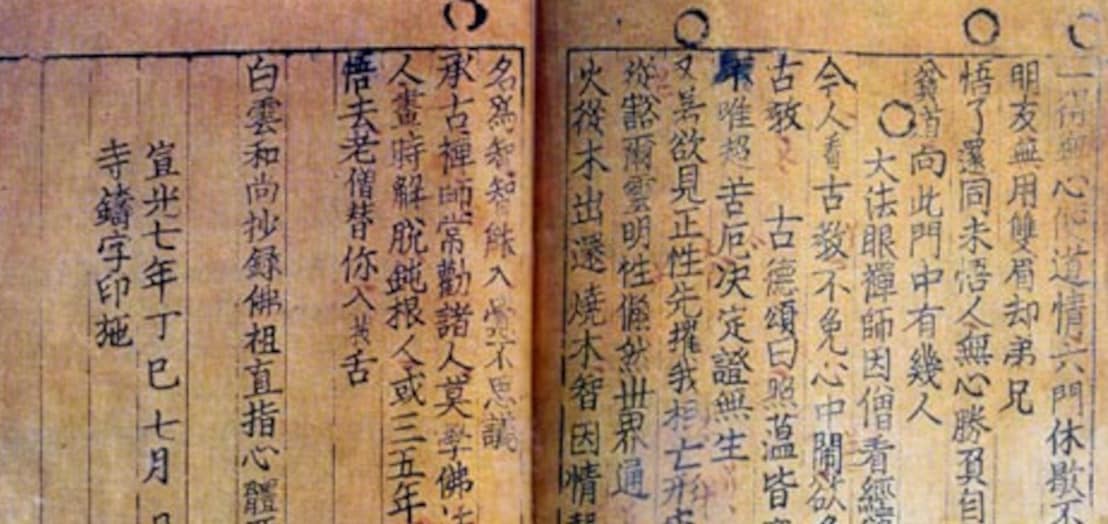 一得無心便道情六門休歇不
明友無用雙眉却弟兄
悟了還同未悟人無心勝負自
道向此門中有幾人
大法眼禪師因僧看經
今人看古教不免心中鬧欲
古教 古德頌曰照蘊皆
唯超苦厄决定證無生
又善欲見正性先摧我相亡形
從豁爾雲明性倐然世界通
火從木出還燒木智因情
名爲智智能入不思議
承古禪師常勸諸人莫學佛
人盡時解脫鈍根人或三五年
悟去老僧替你入拔舌
白雲和尚抄録佛祖直指心體
宣光七年丁巳七月 日
寺鑄字印施